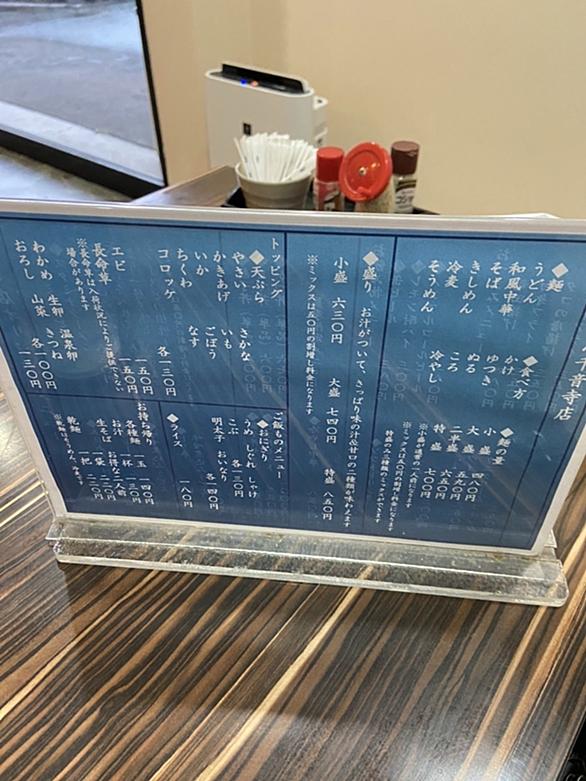 千吉寺店
◆麺
うどん
和風中華
そば
きしめん
冷麦
そうめん
◆食べ方
かけ
ゆつき
ぬる
ころ
冷やし
◆麺の量
小盛 四八〇円
大盛 五九〇円
二半盛 六五〇円
特盛 七〇〇円
※ミックスは五〇円の割増し料金になります
特盛のみ二種類のミックスができます
◆盛り お汁がついて、さっぱり味の汁&甘口の二種類が味わえます
小盛 六三〇円 大盛 七四〇円 特盛 八五〇円
※ミックスは五〇円の割増し料金になります
トッピング
◆天ぷら
やさい さかな
かきあげ いも
いか ごぼう
ちくわ なす
コロッケ 各一三〇円
エビ 一五〇円
長命草 一五〇円
※長命草は入荷状況によりご提供できない
場合があります
わかめ 生卵 きつね 温泉卵 各一〇〇円
おろし 山菜 一三〇円
ご飯ものメニュー
◆おにぎり
うめ しぐれ しゃけ
こぶ 各一三〇円
明太子 おいなり 各一四〇円
◆ライス 一八〇円
◆お持ち帰り
各種麺 一玉 一四〇円
お汁 一杯 二一〇円
生そば お得な二人前
一袋 二二〇円
乾麺 一把